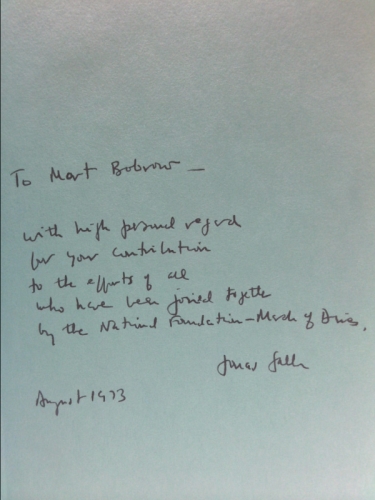 To Mort Bobrow —
with high personal regard
for your contribution
to the efforts of all
who have been joined together
by the National Foundation - March of Dimes.
Jonas Salk
August 1973